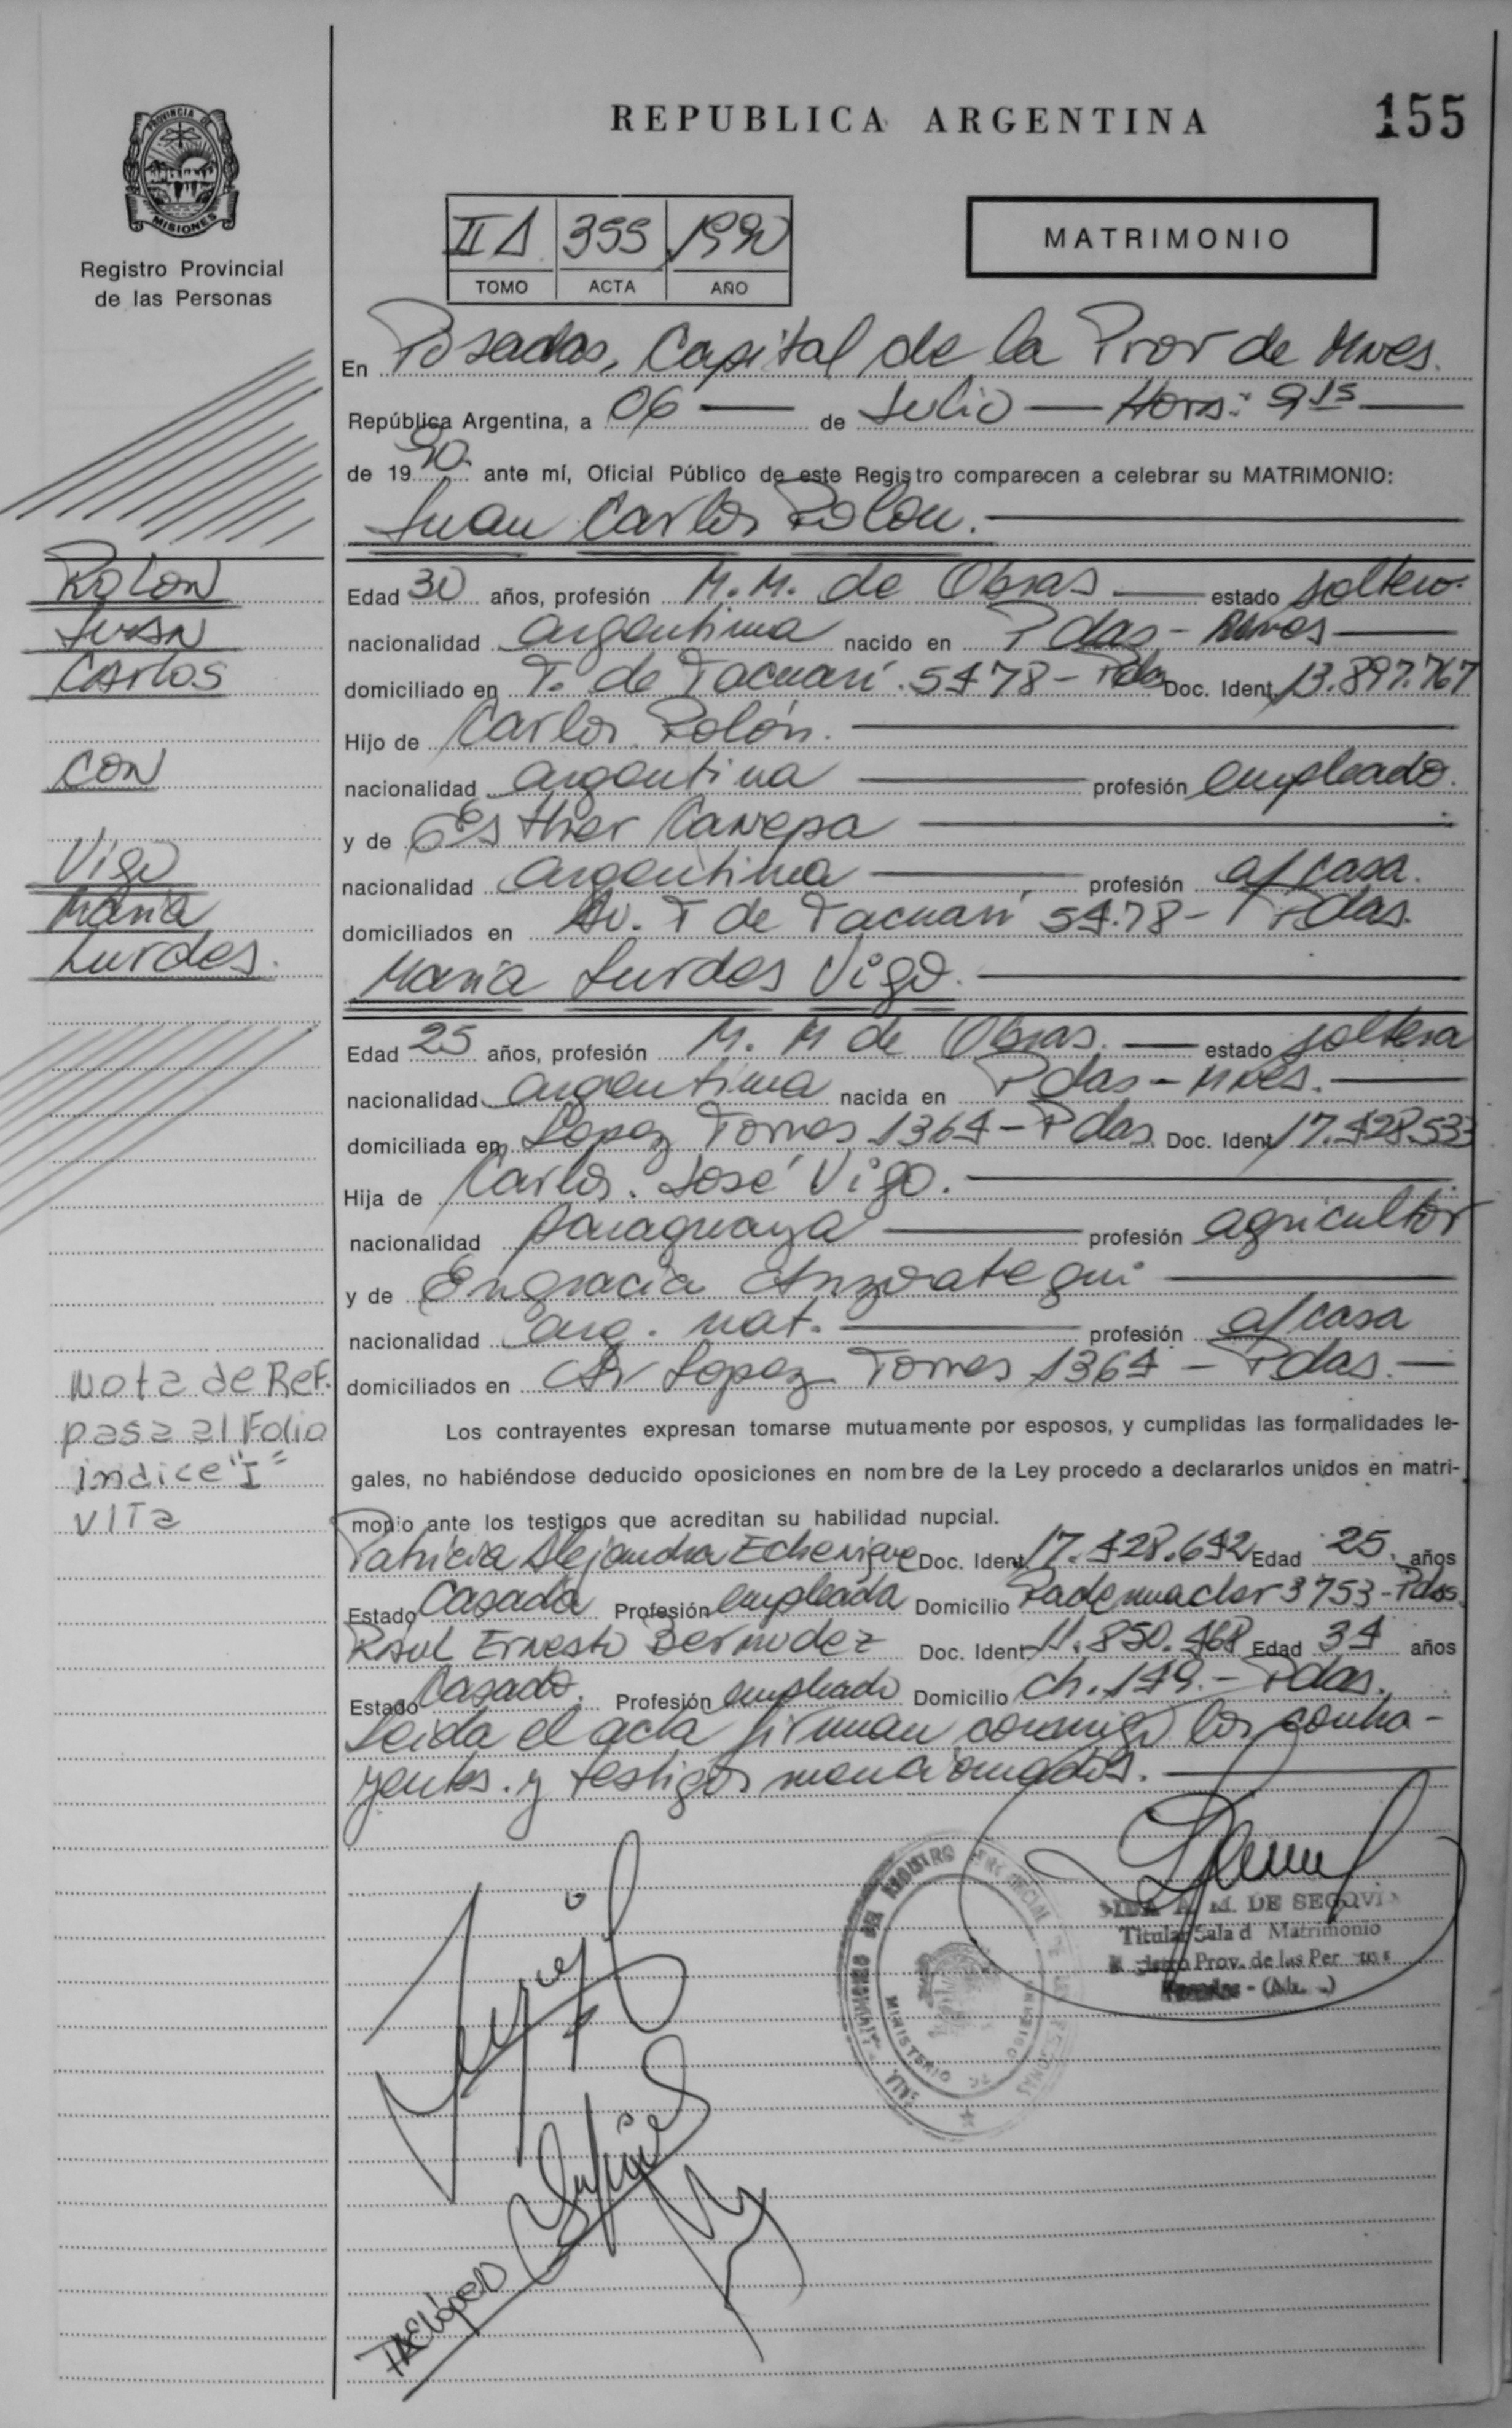 REPUBLICA ARGENTINA
155
PROVINCIA DE
MISIONES
Registro Provincial
de las Personas
II A 355 1990
TOMO ACTA AÑO
MATRIMONIO
En Posadas, Capital de la Prov de Mnes.
República Argentina, a 06 de Julio Hora: 9 15
de 1990. ante mí, Oficial Público de este Registro comparecen a celebrar su MATRIMONIO:
Juan Carlos Rolon.
Edad 30 años, profesión M. M. de Obras estado soltero.
nacionalidad argentina nacido en Pdas - Mnes
domiciliado en T. de Tacuarí 5478 - Pdas Doc. Ident. 13.897.767
Hijo de Carlos Rolón.
nacionalidad argentina profesión empleado.
y de Esther Canepa
nacionalidad argentina profesión a/ casa.
domiciliados en Av. T de Tacuarí 5478 - Pdas.
Maria Lurdes Vigo.
Edad 25 años, profesión M. M de Obras. estado soltera
nacionalidad argentina nacida en Pdas - Mnes.
domiciliada en Lopez Torres 1364 - Pdas. Doc. Ident. 17.428.533
Hija de Carlos José Vigo.
nacionalidad paraguaya profesión agricultor
y de Engracia Anzoategui
nacionalidad arg. nat. profesión a/ casa
domiciliados en Av Lopez Torres 1364 - Pdas.
Los contrayentes expresan tomarse mutuamente por esposos, y cumplidas las formalidades le-
gales, no habiéndose deducido oposiciones en nombre de la Ley procedo a declararlos unidos en matri-
monio ante los testigos que acreditan su habilidad nupcial.
Patricia Alejandra Echenique Doc. Ident. 17.428.642 Edad 25. años
Estado Casada Profesión empleada Domicilio Rademacher 3753 - Pdas.
Raul Ernesto Bermudez Doc. Ident. 11.850.468 Edad 34 años
Estado Casado. Profesión empleado Domicilio Ch. 149. - Pdas.
Leida el acta firman conmigo los contra-
yentes. y testigos mencionados.
ROLON
JUAN
CARLOS
CON
Vigo
Maria
Lurdes.
Nota de Ref.
pasa al Folio
indice "I"
VITa
A. M. DE SEGOVIA
Titular Sala d Matrimonio
Prov. de las Per
MINISTERIO DE